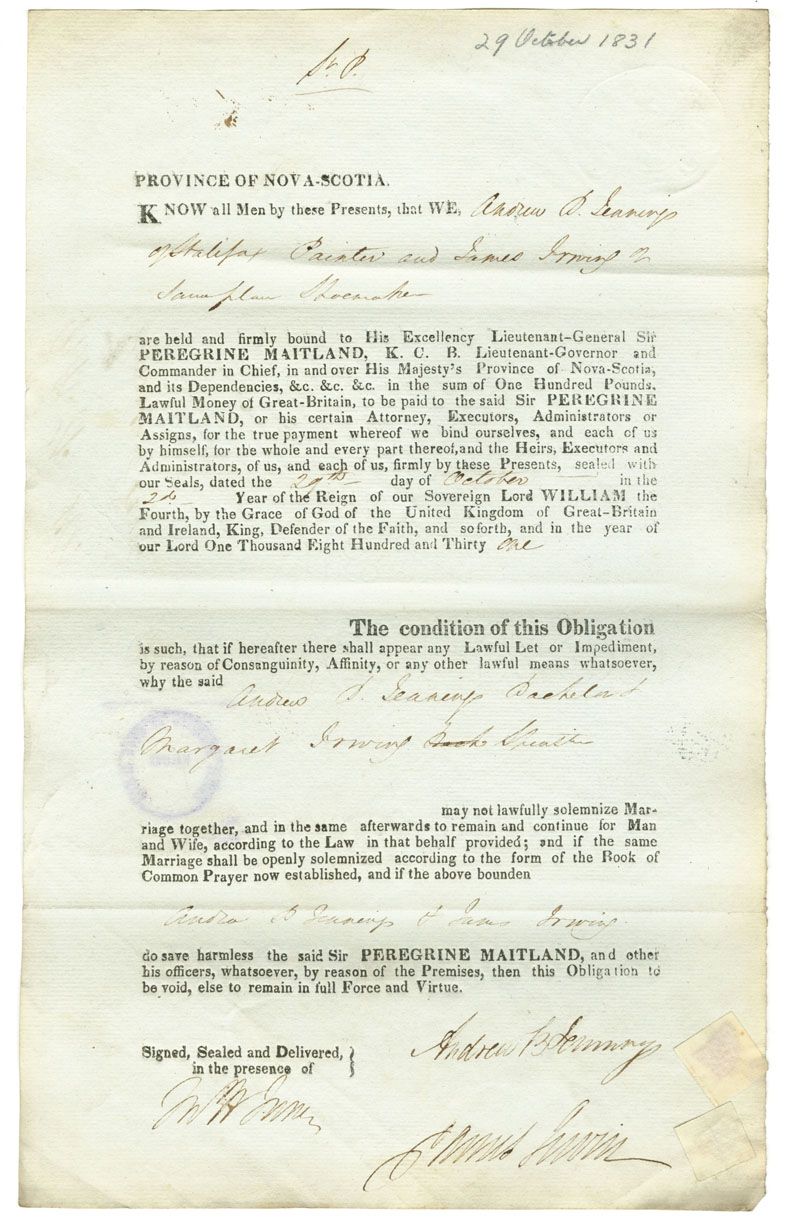 29 October 1831
St. P.
PROVINCE OF NOVA-SCOTIA.
KNOW all Men by these Presents, that WE, Andrew B. Jennings
of Halifax Painter and James Irwing of
same place Shoemaker
are held and firmly bound to His Excellency Lieutenant-General Sir
PEREGRINE MAITLAND, K. C. B. Lieutenant-Governor and
Commander in Chief, in and over His Majesty's Province of Nova-Scotia,
and its Dependencies, &c. &c. &c. in the sum of One Hundred Pounds.
Lawful Money of Great-Britain, to be paid to the said Sir PEREGRINE
MAITLAND, or his certain Attorney, Executors, Administrators or
Assigns, for the true payment whereof we bind ourselves, and each of us
by himself, for the whole and every part thereof, and the Heirs, Executors and
Administrators, of us, and each of us, firmly by these Presents, sealed with
our Seals, dated the 29th day of October in the
2d Year of the Reign of our Sovereign Lord WILLIAM the
Fourth, by the Grace of God of the United Kingdom of Great-Britain
and Ireland, King, Defender of the Faith, and soforth, and in the year of
our Lord One Thousand Eight Hundred and Thirty one
The condition of this Obligation
is such, that if hereafter there shall appear any Lawful Let or Impediment,
by reason of Consanguinity, Affinity, or any other lawful means whatsoever,
why the said
Andrew B. Jennings Bachelor &
Margaret Irwing Spinster
may not lawfully solemnize Mar-
riage together, and in the same afterwards to remain and continue for Man
and Wife, according to the Law in that behalf provided; and if the same
Marriage shall be openly solemnized according to the form of the Book of
Common Prayer now established, and if the above bounden
Andrew B Jennings & James Irwing
do save harmless the said Sir PEREGRINE MAITLAND, and other
his officers, whatsoever, by reason of the Premises, then this Obligation to
be void, else to remain in full Force and Virtue.
Signed, Sealed and Delivered,
in the presence of
Andrew B Jennings
James Irwin